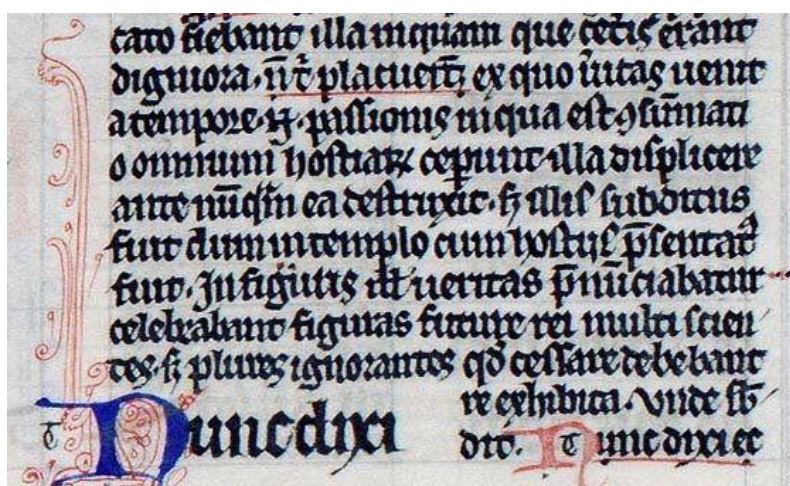 cato fiebant illa inquam que cet͛is erant
digniora. n̄ t̄ placuer̄t, ex quo ūitas uenit
a tempore .s. passionis in qua est ꝯsūmati
o omniū hostiaꝝ ceꝑunt illa displicere
ante nūqͣm ea destruxit. sꝫ illis subditus
fuit dum in templo cum hostiis p̄sentatꝰ
fuit. In figuris ill̄ ueritas p̄nūciabatur
celebrabant figuras future rei multi scien
tes. sꝫ plures ignorantes qđ cessare debebant
re exhibita. Vnde sƀ
dit. Tunc dixi ec
Tunc dixi